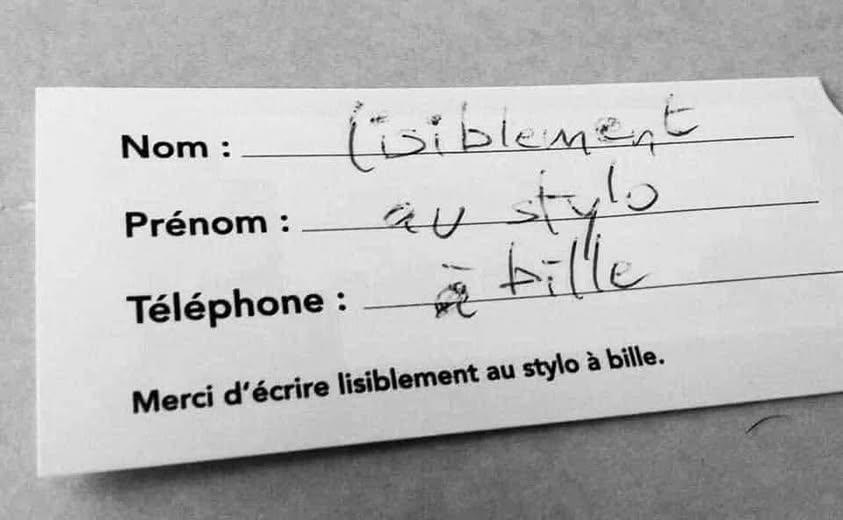 Nom : lisiblement
Prénom : au stylo
Téléphone : à bille
Merci d'écrire lisiblement au stylo à bille.